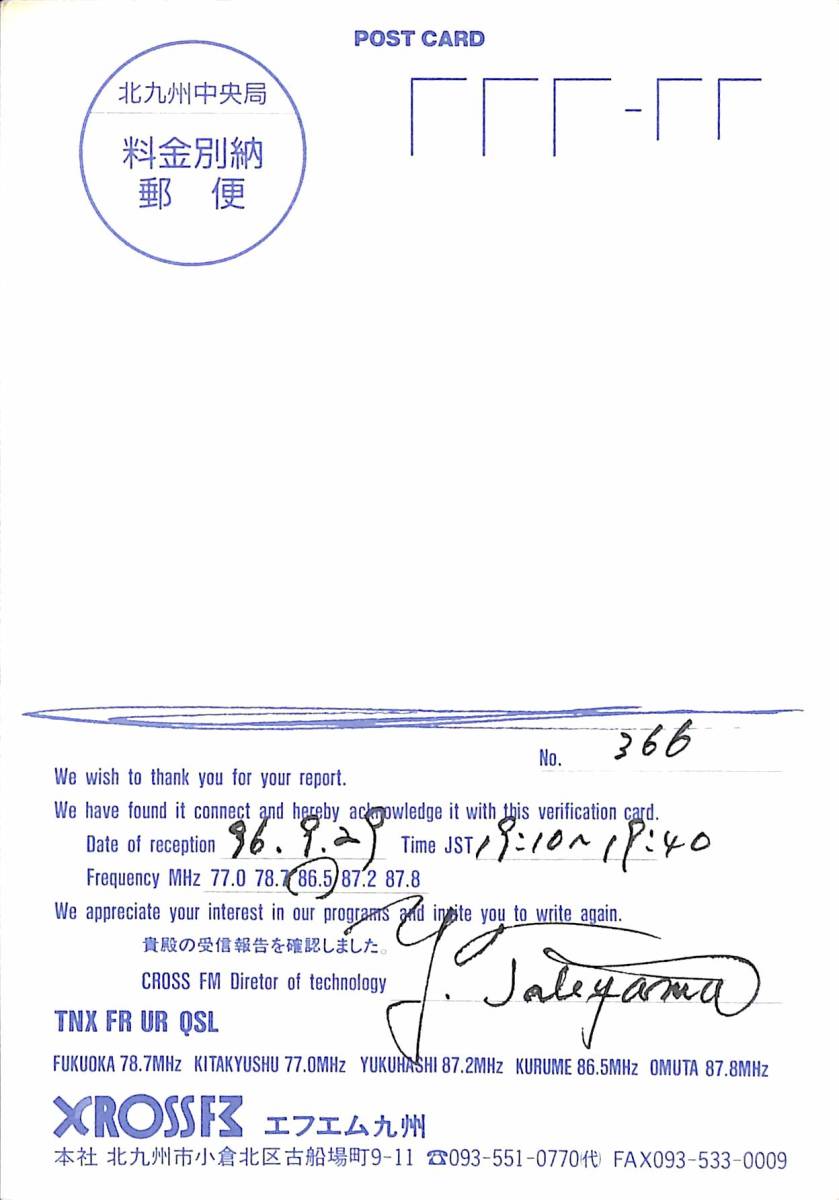 POST CARD
北九州中央局
料金別納
郵 便
No. 366
We wish to thank you for your report.
We have found it connect and hereby acknowledge it with this verification card.
Date of reception 96.9.29 Time JST 19:10~19:40
Frequency MHz 77.0 78.7 86.5 87.2 87.8
We appreciate your interest in our programs and invite you to write again.
貴殿の受信報告を確認しました。
CROSS FM Diretor of technology Y. Tateyama
TNX FR UR QSL
FUKUOKA 78.7MHz KITAKYUSHU 77.0MHz YUKUHASHI 87.2MHz KURUME 86.5MHz OMUTA 87.8MHz
XROSSFM エフエム九州
本社 北九州市小倉北区古船場町9-11 ☎093-551-0770㈹ FAX093-533-0009